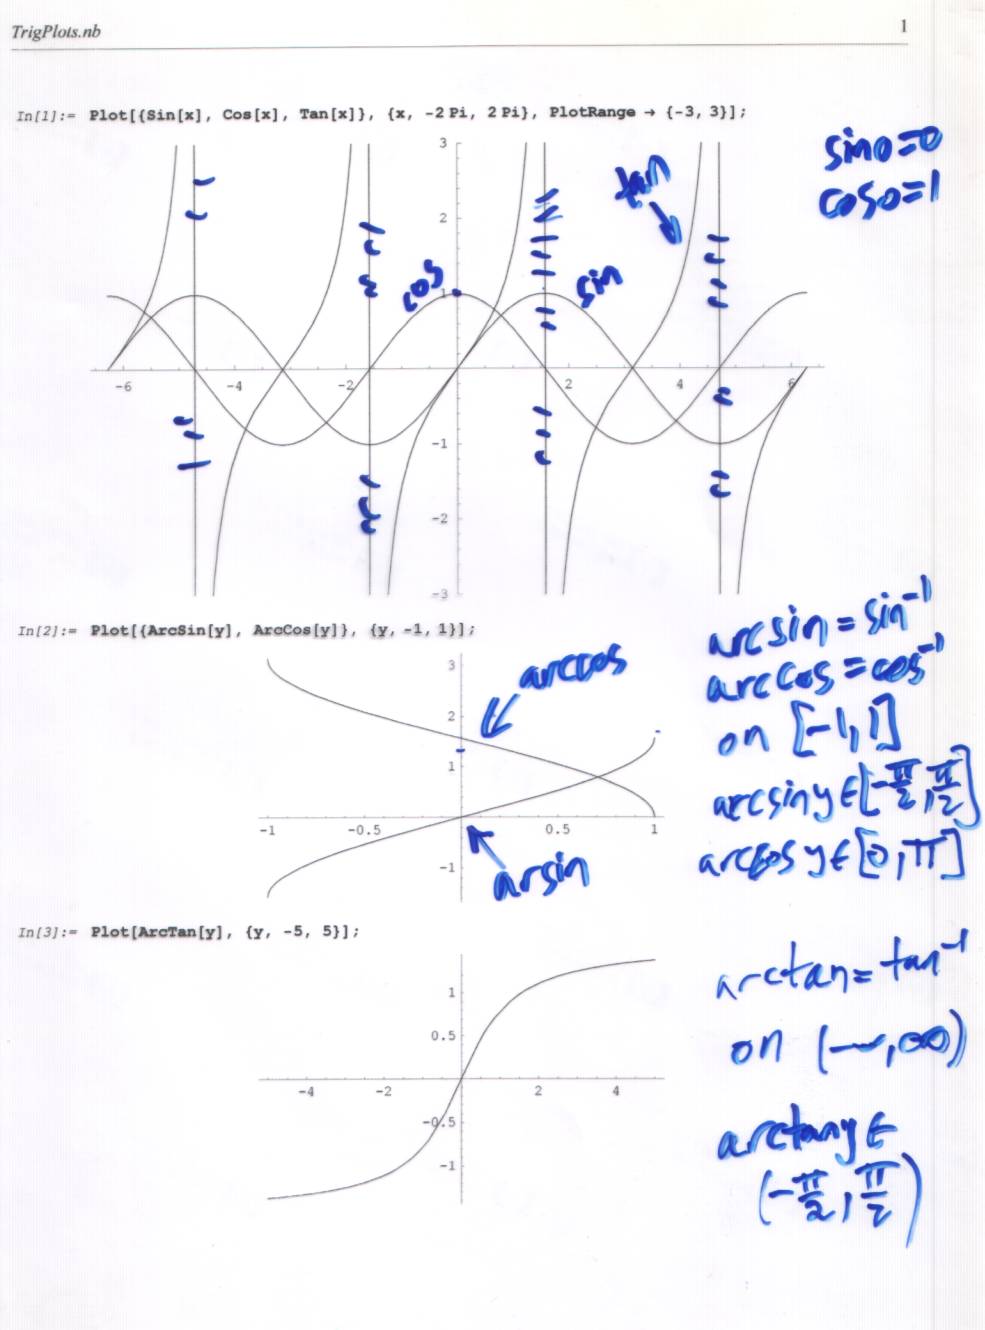 TrigPlots.nb 1
In[1]:= Plot[{Sin[x], Cos[x], Tan[x]}, {x, -2 Pi, 2 Pi}, PlotRange → {-3, 3}];
sin0=0
cos0=1
tan
cos
sin
3
2
1
-6 -4 -2 2 4 6
-1
-2
-3
In[2]:= Plot[{ArcSin[y], ArcCos[y]}, {y, -1, 1}];
arcsin = sin⁻¹
arccos = cos⁻¹
on [-1,1]
arcsiny ∈ [-π/2, π/2]
arccos y ∈ [0, π]
arccos
arsin
3
2
1
-1 -0.5 0.5 1
-1
In[3]:= Plot[ArcTan[y], {y, -5, 5}];
arctan = tan⁻¹
on (-∞, ∞)
arctany ∈
(-π/2, π/2)
1
0.5
-4 -2 2 4
-0.5
-1